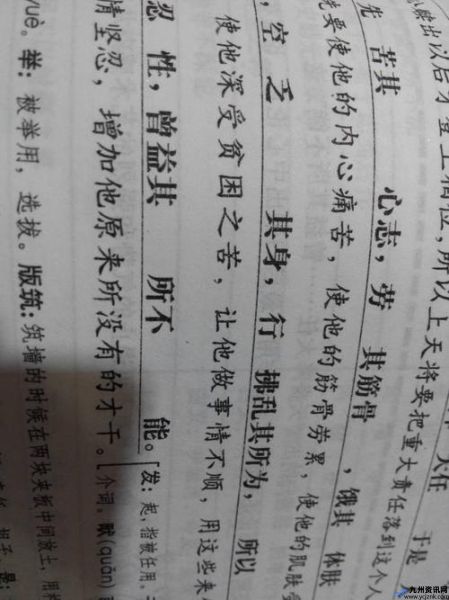 大任 于是
出以后才登上相位，所以上天将要把重大责任落到这个人
苦其 心志，劳 其筋骨 ，饿其 体肤
先要使他的内心痛苦，使他的筋骨劳累，使他的肌肤
，空 乏 其身，行 拂乱其所为，所以
使他深受贫困之苦，让他做事情不顺，用这些来
忍 性，曾益其 所不 能。[发：起，指被任用。
情坚忍，增加他原来所没有的才干。介词。畎(quǎn)
yuè。举：被举用，选拔。版筑：筑墙的时候在两块夹板中间放土，用
九州资讯网
www.ycjznk.com